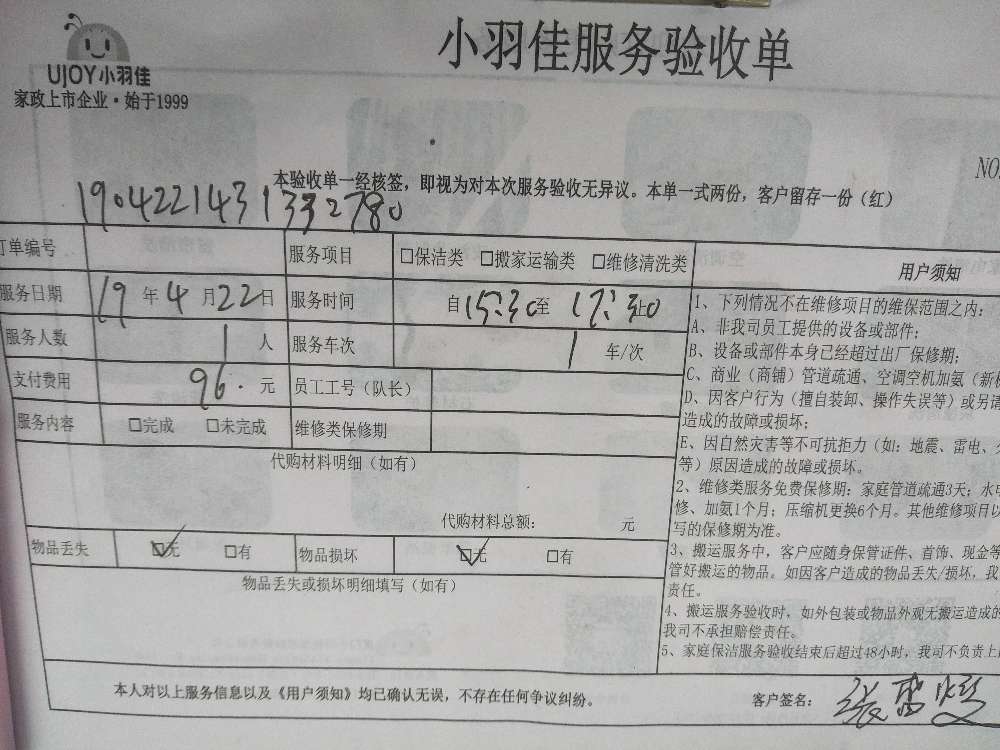 小羽佳服务验收单
UJOY小羽佳
家政上市企业·始于1999
NO.
本验收单一经核签，即视为对本次服务验收无异议。本单一式两份，客户留存一份（红）
1904221431332780
订单编号 服务项目 □保洁类 □搬家运输类 □维修清洗类
服务日期 19年4月22日 服务时间 自15:30至17:30止
服务人数 1人 服务车次 1年/次
支付费用 96.元 员工工号（队长）
服务内容 □完成 □未完成 维修类保修期
代购材料明细（如有）
代购材料总额： 元
物品丢失 ☑无 □有 物品损坏 ☑无 □有
物品丢失或损坏明细填写（如有）
用户须知
1、下列情况不在维修项目的维保范围之内：
A、非我司员工提供的设备或部件；
B、设备或部件本身已经超过出厂保修期；
C、商业（商铺）管道疏通、空调空机加氨（新机
D、因客户行为（擅自装卸、操作失误等）或另请
造成的故障或损坏；
E、因自然灾害等不可抗拒力（如：地震、雷电、
等）原因造成的故障或损坏。
2、维修类服务免费保修期：家庭管道疏通3天；水电
修、加氨1个月；压缩机更换6个月。其他维修项目以
写的保修期为准。
3、搬运服务中，客户应随身保管证件、首饰、现金等
管好搬运的物品。如因客户造成的物品丢失/损坏，我
责任。
4、搬运服务验收时，如外包装或物品外观无搬运造成的
我司不承担赔偿责任。
5、家庭保洁服务验收结束后超过48小时，我司不负责上
本人对以上服务信息以及《用户须知》均已确认无误，不存在任何争议纠纷。
客户签名：张